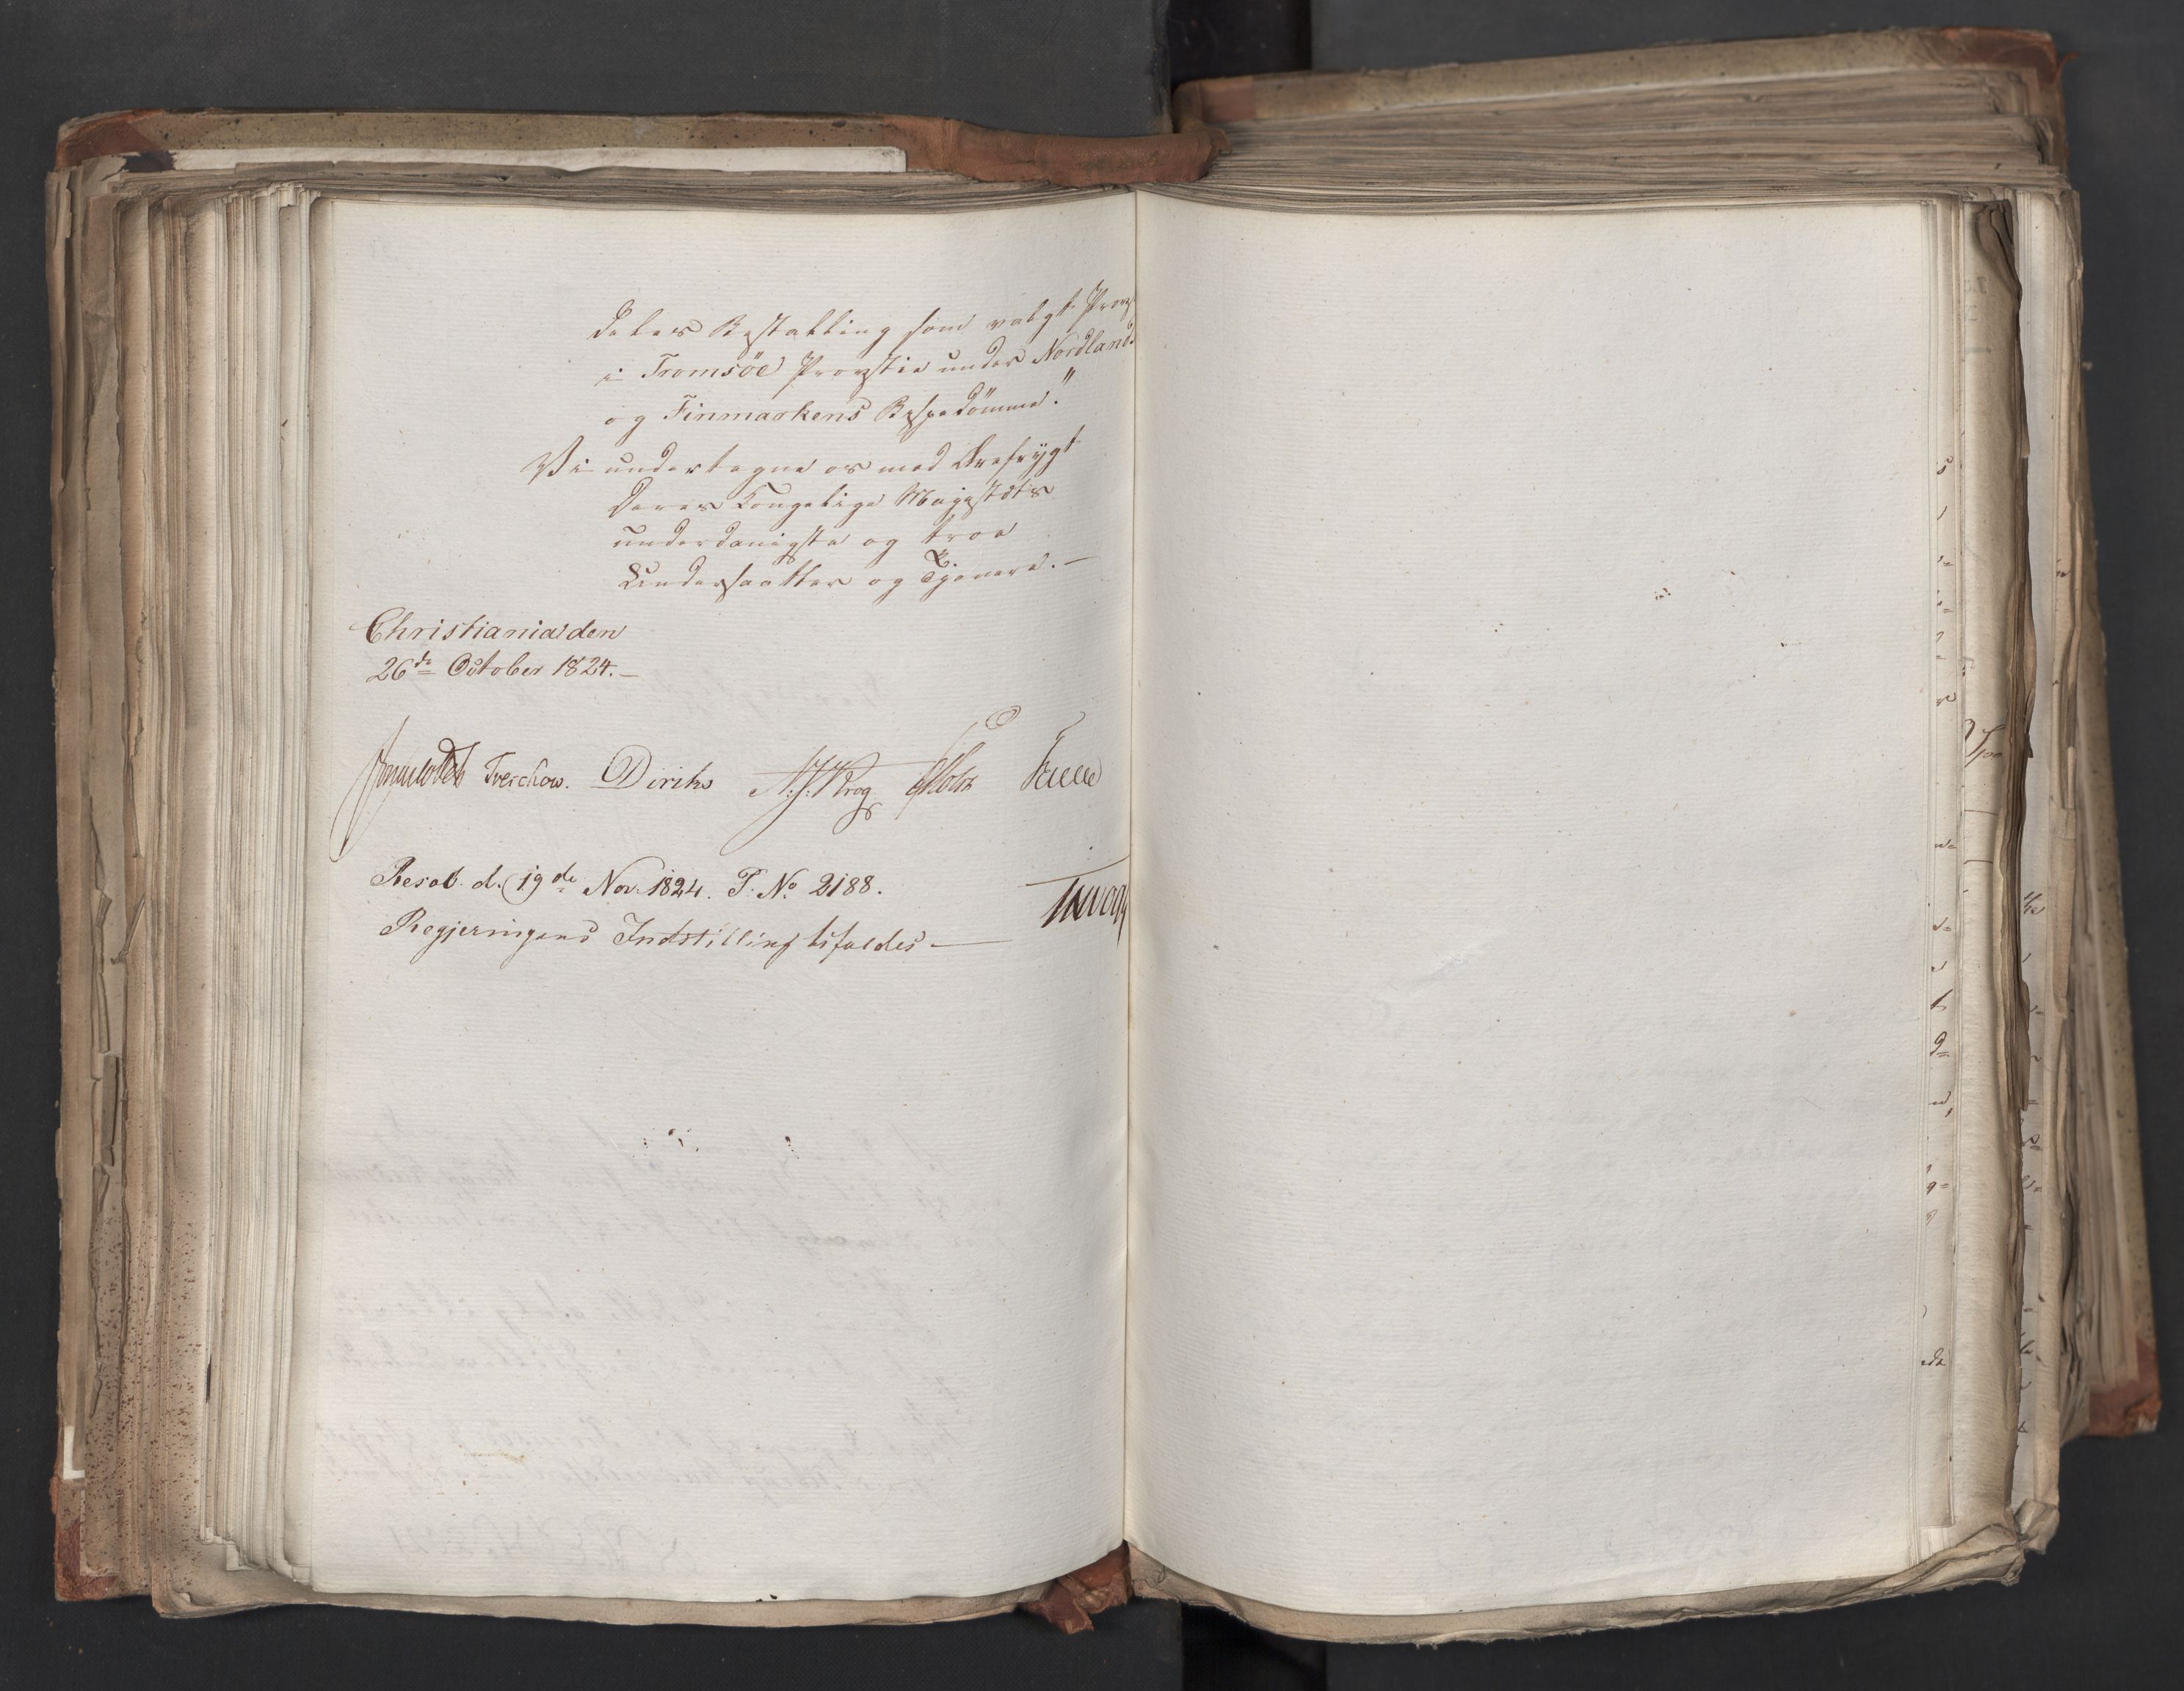 deles Bestalling som valgt Provst
i Tromsöe Provstie under Nordlands
og Finmarkens Bispedömme."
Vi undertegne os med Ærefrÿgt
Deres Kongelige Majestæts
underdanigste og troe
Undersaatter og Tjenere. —
Christiania den
26de October 1824. —
Treschow. Diriks N. J. Krog Holst Falbe
Resol. d. 19de Nov. 1824. P. No 2188.
Regjeringens Indstilling bifaldes —